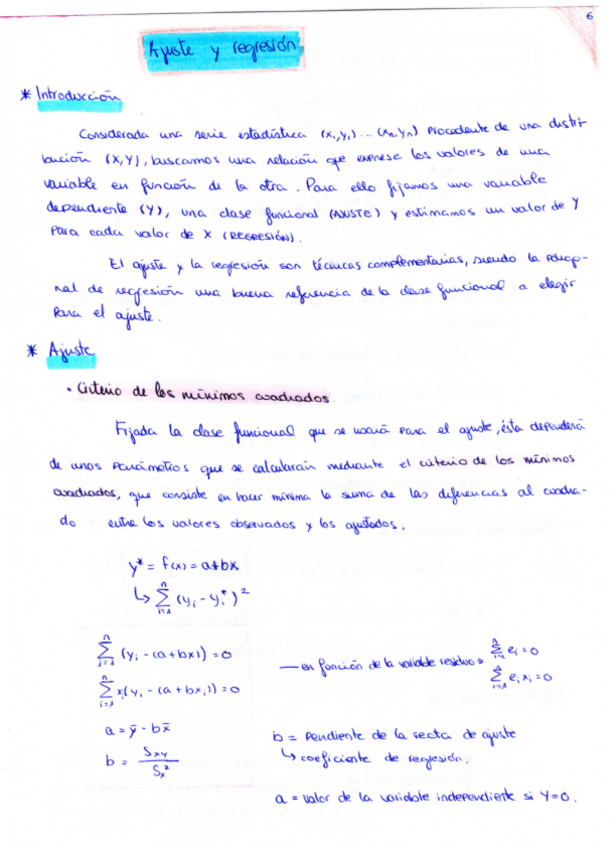 6
Ajuste y regresión
* Introducción
Considerada una serie estadística (x₁,y₁) ... (xₙ,yₙ) procedente de una distri-
bución (X,Y), buscamos una relación que exprese los valores de una
variable en función de la otra. Para ello fijamos una variable
dependiente (Y), una clase funcional (AJUSTE) y estimamos un valor de Y
para cada valor de X (REGRESIÓN).
El ajuste y la regresión son técnicas complementarias, siendo la poligo-
nal de regresión una buena referencia de la clase funcional a elegir
para el ajuste.
* Ajuste
• Criterio de los mínimos cuadrados
Fijada la clase funcional que se usará para el ajuste, ésta dependerá
de unos parámetros que se calcularán mediante el criterio de los mínimos
cuadrados, que consiste en hacer mínima la suma de las diferencias al cuadra-
do entre los valores observados y los ajustados.
y* = f(x) = a+bx
↳ Σᵢ₌₁ⁿ (yᵢ - yᵢ*)²
Σᵢ₌₁ⁿ (yᵢ - (a+bxᵢ)) = 0
— en función de la variable residuo → Σᵢ₌₁ⁿ eᵢ = 0
Σᵢ₌₁ⁿ xᵢ(yᵢ - (a+bxᵢ)) = 0
Σᵢ₌₁ⁿ eᵢxᵢ = 0
a = ȳ - bx̄
b = Sxy / Sx²
b = pendiente de la recta de ajuste
↳ coeficiente de regresión.
a = valor de la variable independiente si Y=0.